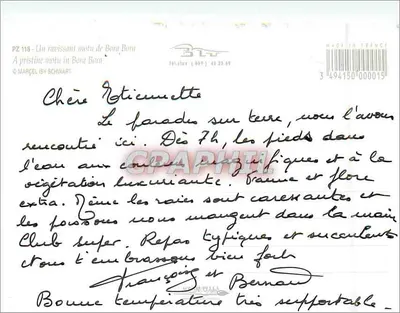 PZ 118 - Un ravissant motu de Bora Bora
A pristine motu in Bora Bora
© MARCEL ISY-SCHWART
MADE IN FRANCE
3 494150 000015
Chère Etiennette
Le paradis sur terre, nous l'avons
rencontré ici. Dès 7h, les pieds dans
l'eau aux couleurs magnifiques et à la
végétation luxuriante. Faune et flore
extra. Même les raies sont caressantes et
les poissons nous mangent dans la main
Club super. Repas typiques et succulents
et nous t'embrassons bien fort
Françoise et Bernard
Bonne température très supportable.